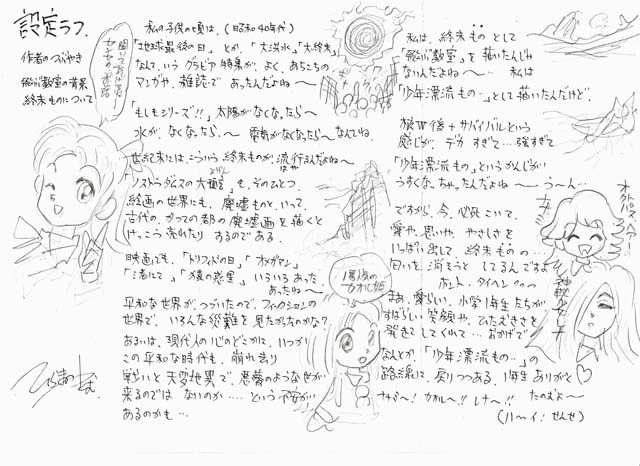 設定ラフ.
作者のつぶやき
飛ぶ教室の背景
終末ものについて
聞いてあげましょー
センセのお話
私の子供の頃は、(昭和40年代)
「地球最後の日」とか、「大洪水」「大終末」
なんていう グラビア特集が、よく、あちこちの
マンガや、雑誌で あったんだよね〜
「もしもシリーズ!!」太陽がなくなったら〜
水が、なくなったら、〜 電気がなくなったら〜なんてね。
世紀末には、こういう終末ものが、流行るんだよね〜
はや
「ノストラダムスの大予言」も、そのひとつ。
よげん
絵画の世界にも、廃墟ものと、いって、
古代の、かつての都の廃墟画を描くと
けっこう売れたり するのである。
映画でも、「トリフィドの日」「オメガマン」
「渚にて」「猿の惑星」いろいろあった
あったね〜
平和な世界が、つづいたので、フィクションの
世界で、いろんな災難を見たがったのかな?
あるいは、現代人の心のどこかに、いつか
この平和な時代も、崩れ去り
戦いと天変地異で、悪夢のような世が
来るのでは ないのか‥‥ という不安が
あるのかも…
1年後の
カオル姫
私は、終末もの として
「飛ぶ教室」を描いたんじゃ
ないんだよね〜… 私は
「少年漂流もの…」として描いたんだけど、
核戦後+サバイバルという
感じが、デカ すぎて…強すぎて
「少年漂流もの」というかんじが
うすくなっちゃったんだよね〜 う〜ん…
ですから、今、必死こいて、
愛や、思いや、やさしさを
いっぱい出して、終末もの の…
匂いを消そうと してるんですよ
ホント、タイヘン
まあ、愛らしい、小学1年生たちが
すばらしい笑顔や、ひたむきさを
発きてしてくれて… おかげで
なんとか、「少年漂流もの…」の
路線に、戻りつつある、1年生ありがと♡
たのむよ〜
カオル!! レナ〜!!
(ハ〜イ! せんせ)